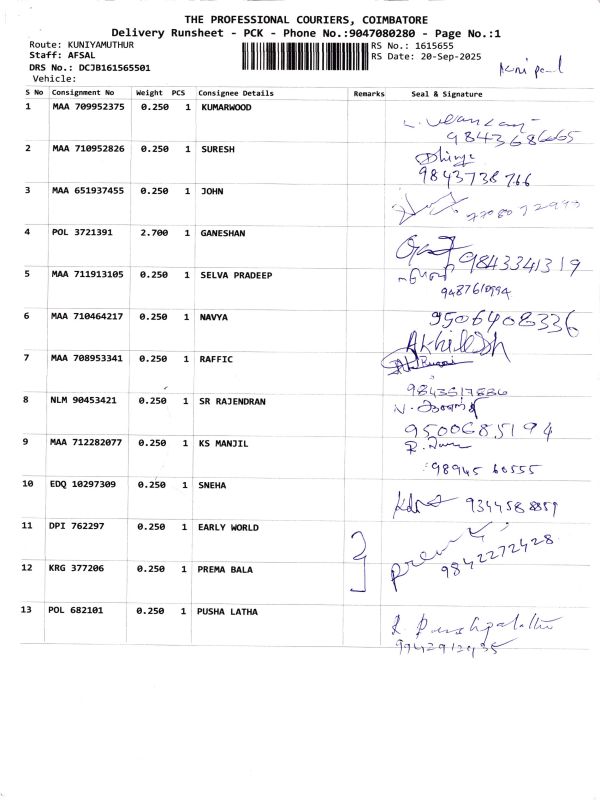 THE PROFESSIONAL COURIERS, COIMBATORE
Delivery Runsheet - PCK - Phone No.:9047080280 - Page No.:1
Route: KUNIYAMUTHUR
RS No.: 1615655
Staff: AFSAL
RS Date: 20-Sep-2025
DRS No.: DCJB161565501
Vehicle:
S No Consignment No Weight PCS Consignee Details Remarks Seal & Signature
1 MAA 709952375 0.250 1 KUMARWOOD
9843686665
2 MAA 710952826 0.250 1 SURESH
9843738766
3 MAA 651937455 0.250 1 JOHN
4 POL 3721391 2.700 1 GANESHAN
9843341319
5 MAA 711913105 0.250 1 SELVA PRADEEP
6 MAA 710464217 0.250 1 NAVYA
9506408336
Akhilesh
7 MAA 708953341 0.250 1 RAFFIC
8 NLM 90453421 0.250 1 SR RAJENDRAN
9500685194
9 MAA 712282077 0.250 1 KS MANJIL
98945 60555
10 EDQ 10297309 0.250 1 SNEHA
11 DPI 762297 0.250 1 EARLY WORLD
9842272428
12 KRG 377206 0.250 1 PREMA BALA
13 POL 682101 0.250 1 PUSHA LATHA